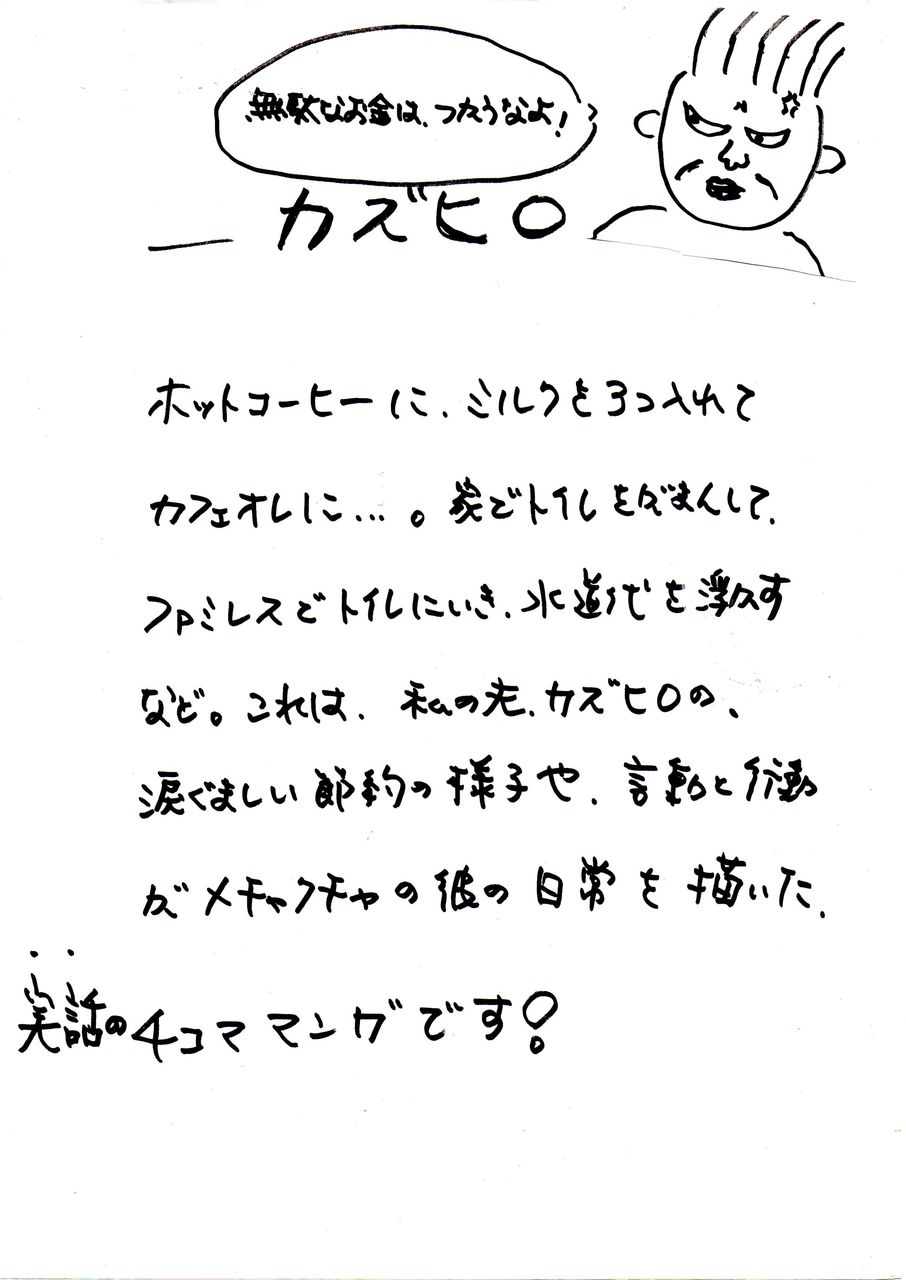 無駄なお金は、つかうなよ!
カズヒロ
ホットコーヒーに、ミルクを3つ入れて
カフェオレに…。家でトイレをがまんして、
ファミレスでトイレにいき、水道代を浮かす
など。これは、私の夫、カズヒロの、
涙ぐましい節約の様子や、言動と行動
がメチャクチャの彼の日常を描いた、
実話の4コママンガです!